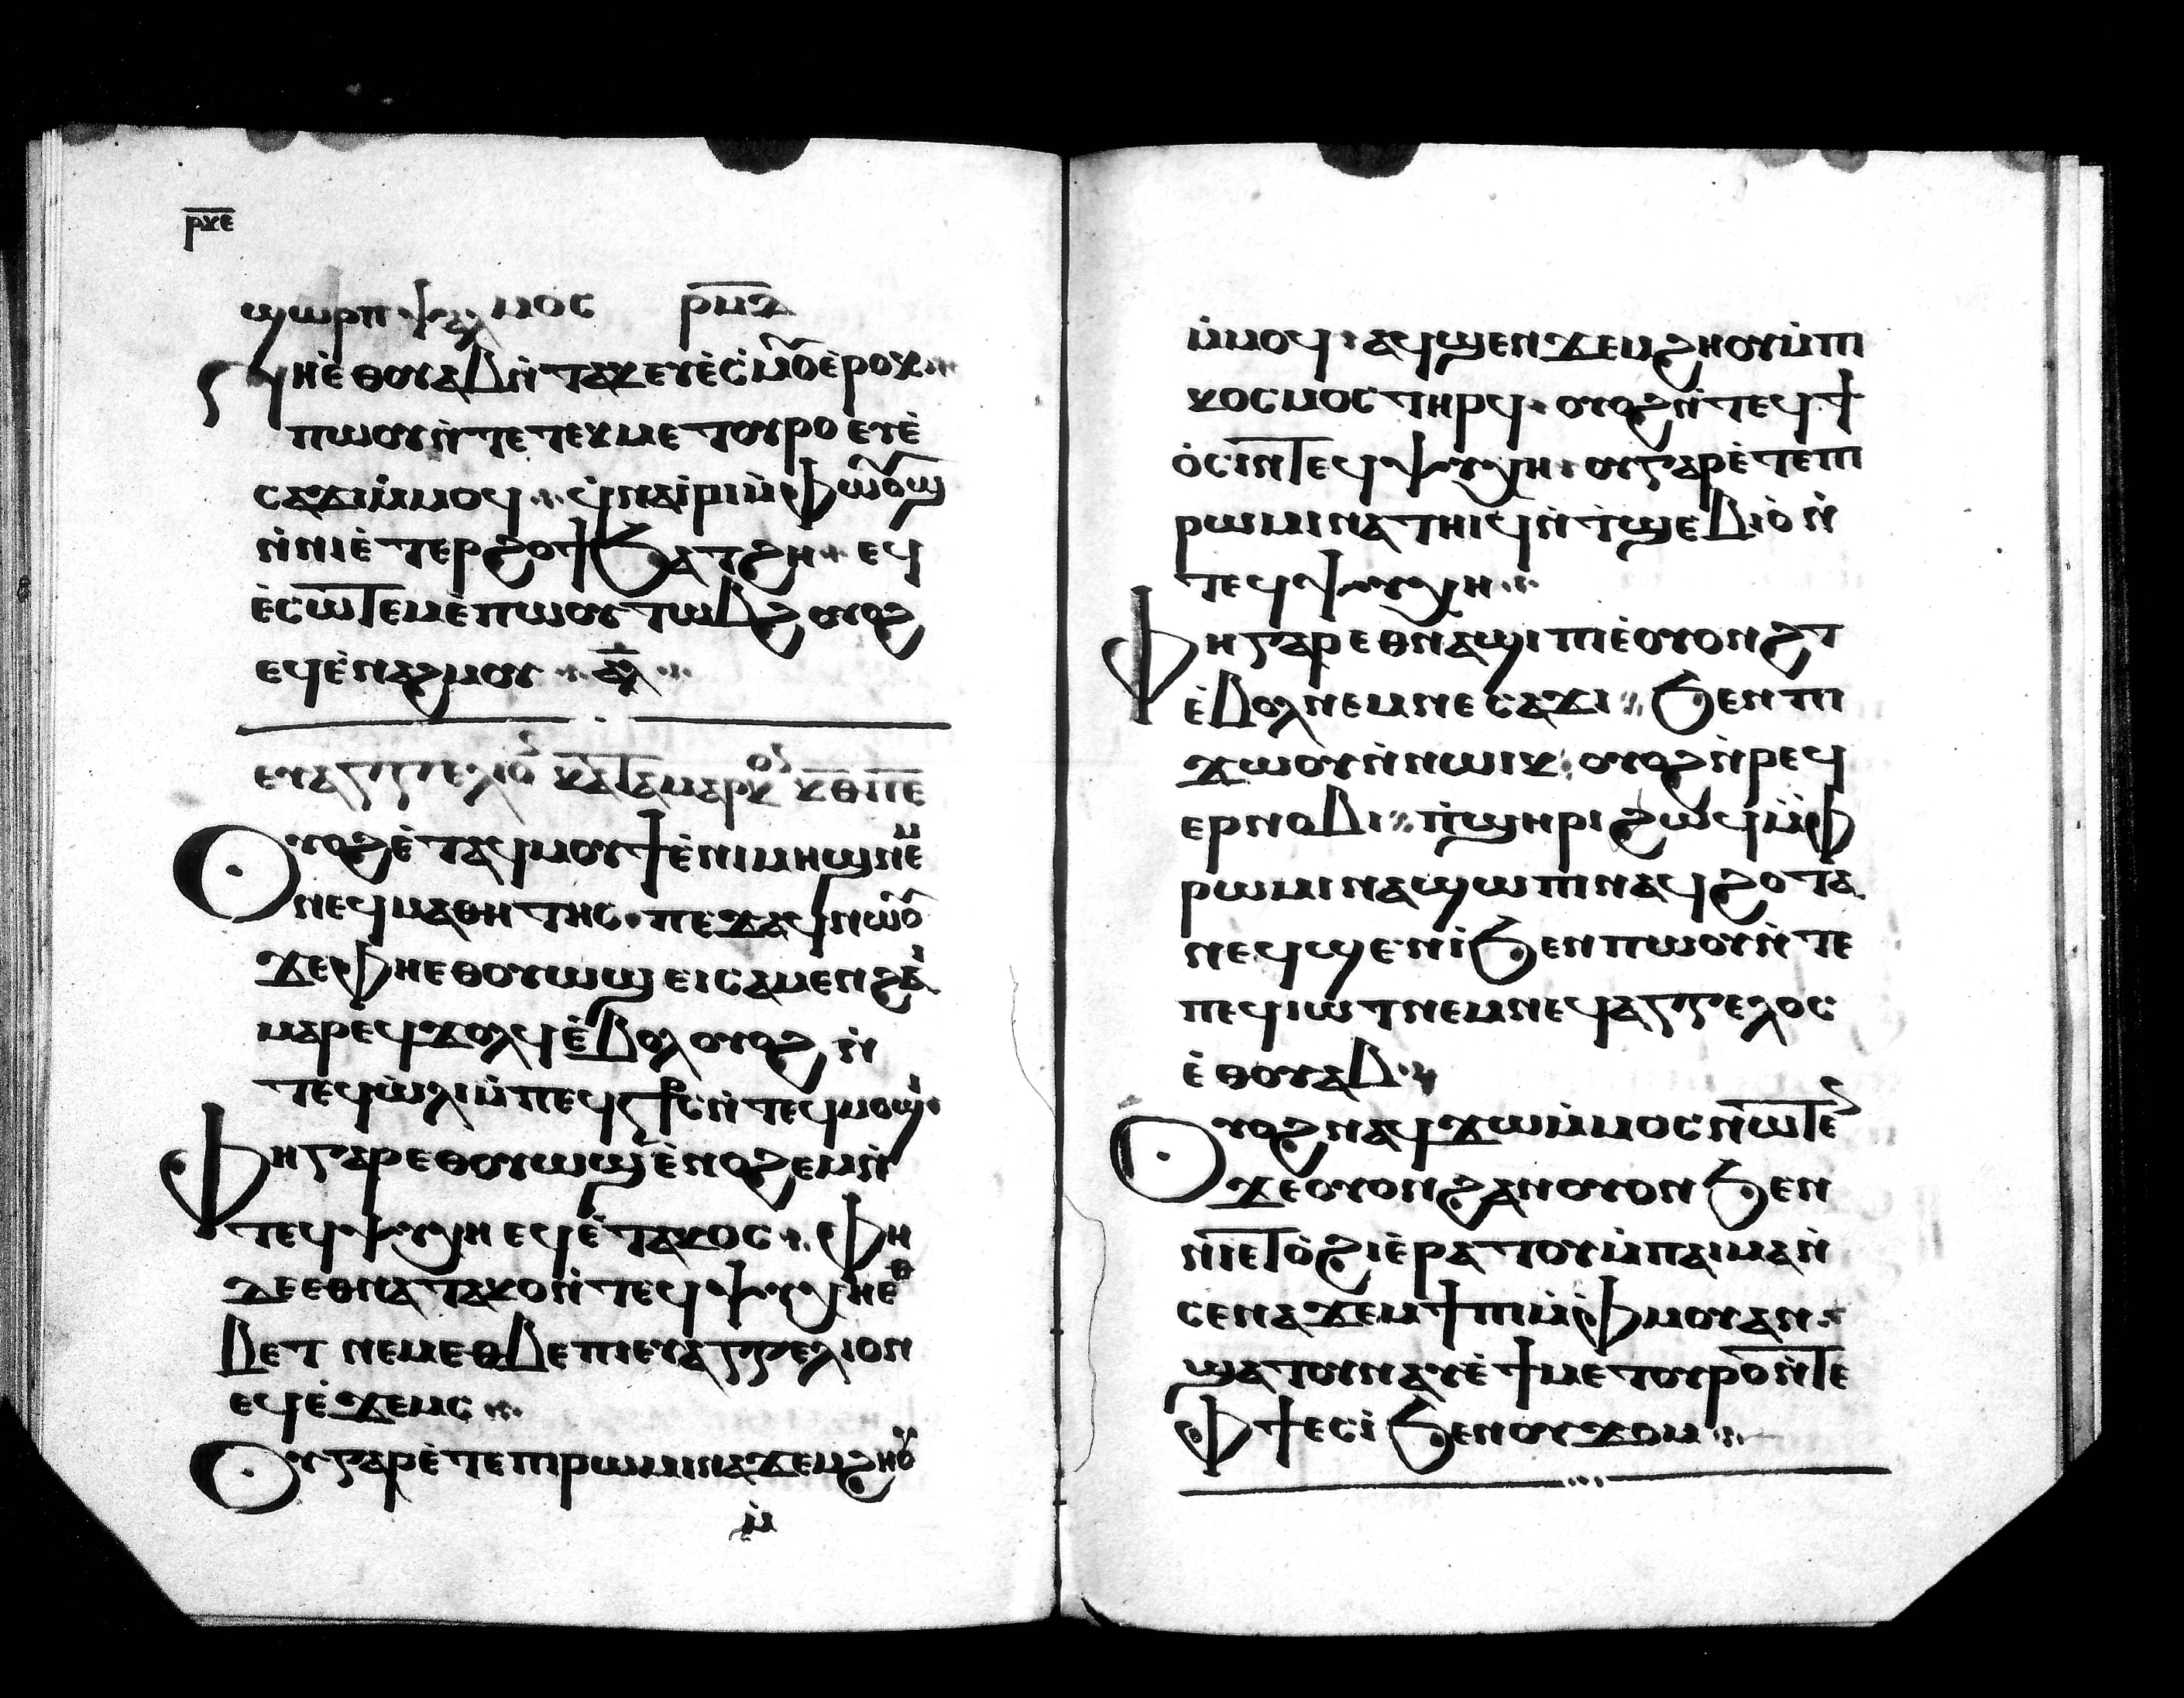 ⲣⲕⲉ
ϣⲱⲣⲡ ⲯⲁⲗⲙⲟⲥ ⲣⲙⲇ
ⲛⲏⲉ̀ⲑⲟⲩⲁⲃⲛ̀ⲧⲁⲕⲉⲩⲉ̀ⲥ̀ⲙⲟⲉ̀ⲣⲟⲕ
ⲡⲱⲟⲩⲛ̀ⲧⲉⲧⲉⲕⲙⲉⲧⲟⲩⲣⲟ ⲉⲩⲉ̀
ⲥⲁϫⲓⲙ̀ⲙⲟϥ ϥ̀ⲛⲁⲓ̀ⲣⲓⲙ̀ⲫⲟⲩⲱϣ
ⲛ̀ⲛⲓⲉ̀ⲧⲉⲣϩⲟϯϧⲁⲧϩⲏ ⲉϥ
ⲉ̀ⲥⲱⲧⲉⲙⲉ̀ⲡⲱⲟⲩⲧⲱⲃϩ ⲟⲩⲟϩ
ⲉϥⲉ̀ⲛⲁϩⲙⲟⲩ ⲁ̅ⲗ̅
ⲉⲩⲁⲅⲅⲉⲗⲓⲟ ⲕⲁⲧⲁⲙⲁⲣⲕⲟⲥ ⲕⲑ ⲡⲉ
Ⲟⲩⲟϩⲉ̀ⲧⲁϥⲙⲟⲩϯⲉ̀ⲡⲓⲙⲏϣⲛⲉⲙ
ⲛⲉϥⲙⲁⲑⲏⲧⲏⲥ ⲡⲉϫⲁϥⲛⲱⲟⲩ
ϫⲉⲫⲏⲉⲑⲟⲩⲱϣ ⲉⲓⲥⲁⲙⲉⲛϩⲏⲓ
ⲙⲁⲣⲉϥϫⲟⲗϥⲉ̀ⲃⲟⲗ ⲟⲩⲟϩ ⲛ̀
ⲧⲉϥⲱ̀ⲗⲓⲙ̀ⲡⲉϥⲥ̅ⲣⲥⲛ̀ⲧⲉϥⲙⲟϣⲓ
Ⲫⲏⲅⲁⲣⲉⲑⲟⲩⲱϣ ⲉ̀ⲛⲟϩⲉⲙⲛ̀
ⲧⲉϥⲯⲩⲭⲏ ⲉϥⲉ̀ⲧⲁⲕⲟⲥ ⲫⲏ
ⲇⲉⲉⲑⲛⲁⲧⲁⲕⲟⲛ̀ⲧⲉϥⲯⲩⲭⲏⲉⲑ
ⲃⲉⲧ ⲛⲉⲙⲉⲑⲃⲉⲡⲓⲉⲩⲁⲅⲅⲉⲗⲓⲟⲛ
ⲉϥⲉ̀ϫⲉⲙⲥ
Ⲟⲩⲅⲁⲣⲉ̀ⲧⲉⲡⲓⲣⲱⲙⲓⲛⲁϫⲉⲙϩⲏⲟⲩ
ⲙ̀
ⲙ̀ⲙⲟϥ ⲁϥϣⲉⲛϫⲉⲙϩⲏⲟⲩⲙ̀ⲡⲓ
ⲕⲟⲥⲙⲟⲥⲧⲏⲣϥ ⲟⲩⲟϩⲛ̀ⲧⲉϥϯ
ⲟ̀ⲥⲓⲛ̀ⲧⲉϥⲯⲩⲭⲏ ⲟⲩⲅⲁⲣⲉ̀ⲧⲉⲡⲓ
ⲣⲱⲙⲓⲛⲁⲧⲏⲓϥⲛ̀ⲧ̀ϣⲉⲃⲓⲟ̀ ⲛ̀
ⲧⲉϥⲯⲩⲭⲏ
Ⲫⲏⲅⲁⲣⲉⲑⲛⲁϣⲓⲡⲓⲉ̀ⲟⲩⲟⲛϩⲧ
ⲉ̀ⲃⲟⲗⲛⲉⲙⲛⲉⲥⲁϫⲓ ϧⲉⲛⲡⲓ
ϫⲱⲟⲩⲛ̀ⲛⲱⲓⲕ ⲟⲩⲟϩⲛ̀ⲣⲉϥ
ⲉⲣⲛⲟⲃⲓ ⲡ̀ϣⲏⲣⲓϩⲱϥⲙ̀ⲫ
ⲣⲱⲙⲓⲛⲁϣⲱⲡⲓⲛⲁϥϩⲟⲧⲁ
ⲛⲉϥϣⲉⲛⲓ̀ϧⲉⲛⲡⲱⲟⲩⲛ̀ⲧⲉ
ⲡⲉϥⲓⲱⲧⲛⲉⲙⲛⲉϥⲁⲅⲅⲉⲗⲟⲥ
ⲉ̀ⲑⲟⲩⲁⲃ
Ⲟⲩⲟϩⲛⲁϥϫⲱⲙ̀ⲙⲟⲥⲛⲱⲧⲉ
ϫⲉⲟⲩⲟⲛϩⲁⲛⲟⲩⲟⲛϧⲉⲛ
ⲛⲏⲉⲧⲟ̀ϩⲓⲉ̀ⲣⲁⲧⲟⲩⲙ̀ⲡⲁⲓⲙⲁⲛ̀
ⲥⲉⲛⲁϫⲉⲙϯⲡⲓⲙ̀ⲫⲙⲟⲩⲁⲛ
ϣⲁⲧⲟⲩⲛⲁⲩⲉ̀ϯⲙⲉⲧⲟⲩⲣⲟⲛ̀ⲧⲉ
ⲫϯⲉⲥⲓ̀ϧⲉⲛⲟⲩϫⲟⲙ